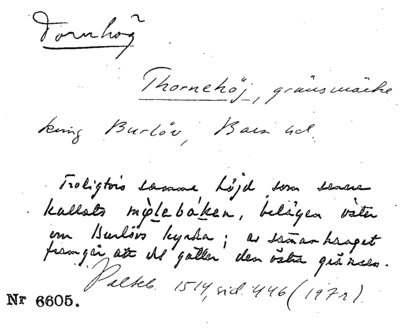 Tornhög
Thornehöj, gränsmärke
kring Burlöv, Bara hd.
Troligtvis samma höjd som senare
kallats mölebáken, belägen väster
om Burlövs kyrka; av sammanhanget
framgår att det gäller den västra gränsen.
Palteb. 1514, sid. 446 (197r)
Nr 6605.